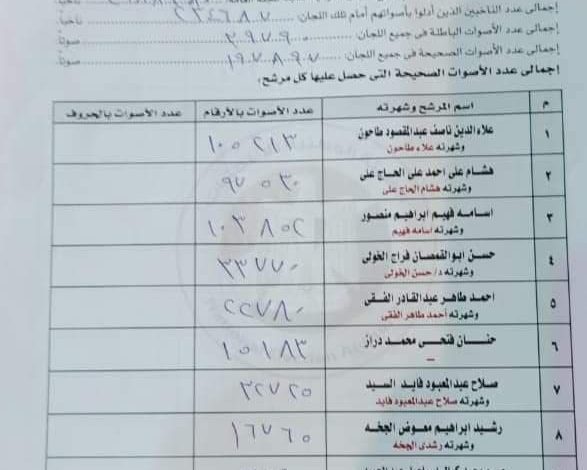 إجمالى عدد الناخبين الذين أدلوا بأصواتهم أمام تلك اللجان ٢٣٤٦٨٠٧ ناخباً.
إجمالى عدد الأصوات الباطلة فى جميع اللجان ٣٩٧٩٠٠ صوتاً.
إجمالى عدد الأصوات الصحيحة فى جميع اللجان ١٩٧٨٩٠٧ صوتاً.
إجمالى عدد الأصوات الصحيحة التى حصل عليها كل مرشح:
م اسم المرشح وشهرته عدد الأصوات بالأرقام عدد الأصوات بالحروف
١ علاء الدين ناصف عبدالمقصود طاحون ١٠٠٢١٣
وشهرته علاء طاحون
٢ هشام على احمد على الحاج على ٩٧٠٣٠
وشهرته هشام الحاج على
٣ اسامه فهيم ابراهيم منصور ١٠٣٨٥٢
وشهرته اسامه فهيم
٤ حسن ابوالقمصان فراج الخولى ٣٣٧٧٠
وشهرته د/ حسن الخولى
٥ احمد طاهر عبدالقادر الفقى ٢٢٧٨٠
وشهرته أحمد طاهر الفقى
٦ حنان فتحى محمد دراز ١٥١٨٣
–
٧ صلاح عبدالمعبود فايد السيد ٣٢٧٢٥
وشهرته صلاح عبدالمعبود فايد
٨ رشيد ابراهيم معوض الجخه ١٦٧٦٥
وشهرته رشدى الجخه